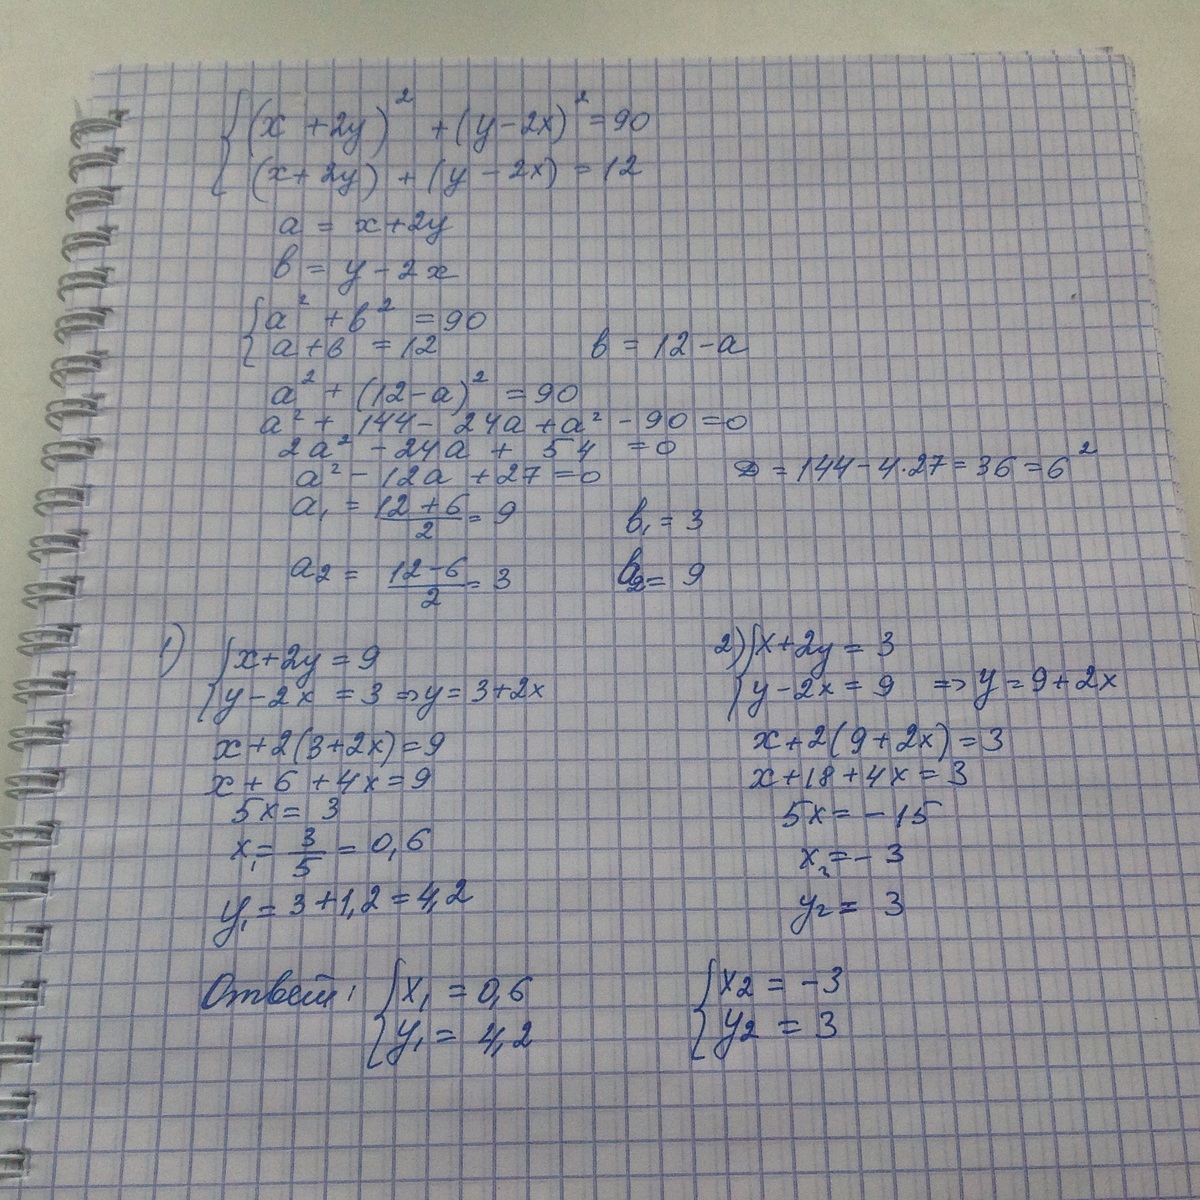 {(x + 2y)² + (y - 2x)² = 90
(x + 2y) + (y - 2x) = 12
a = x + 2y
в = y - 2x
{a² + в² = 90
a + в = 12 в = 12 - a
a² + (12 - a)² = 90
a² + 144 - 24a + a² - 90 = 0
2a² - 24a + 54 = 0
a² - 12a + 27 = 0 D = 144 - 4·27 = 36 = 6²
a₁ = (12 + 6)/2 = 9 в₁ = 3
a₂ = (12 - 6)/2 = 3 в₂ = 9
1) {x + 2y = 9
y - 2x = 3 => y = 3 + 2x
x + 2(3 + 2x) = 9
x + 6 + 4x = 9
5x = 3
x₁ = 3/5 = 0,6
y₁ = 3 + 1,2 = 4,2
2) {x + 2y = 3
y - 2x = 9 => y = 9 + 2x
x + 2(9 + 2x) = 3
x + 18 + 4x = 3
5x = -15
x₂ = -3
y₂ = 3
Ответ: {x₁ = 0,6 {x₂ = -3
y₁ = 4,2 y₂ = 3